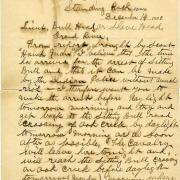 Standing Rock
December 14, 1890
Lieut. Bull Head or Shave Head,
Grand River,
From report brought by Scout
"Hawk Man" I believe the time
has arrived for the arrest of Sitting
Bull and that it can be made
by the Indian Police without much
risk. I therefore want you to
make the arrest before daylight
tomorrow morning, and try and
get back to the Sitting Bull road
crossing of Oak Creek by daylight
tomorrow morning or as soon
after as possible. The Cavalry
will leave here tonight and
will reach the Sitting Bull crossing
on Oak Creek before daylight
tomorrow morning, where